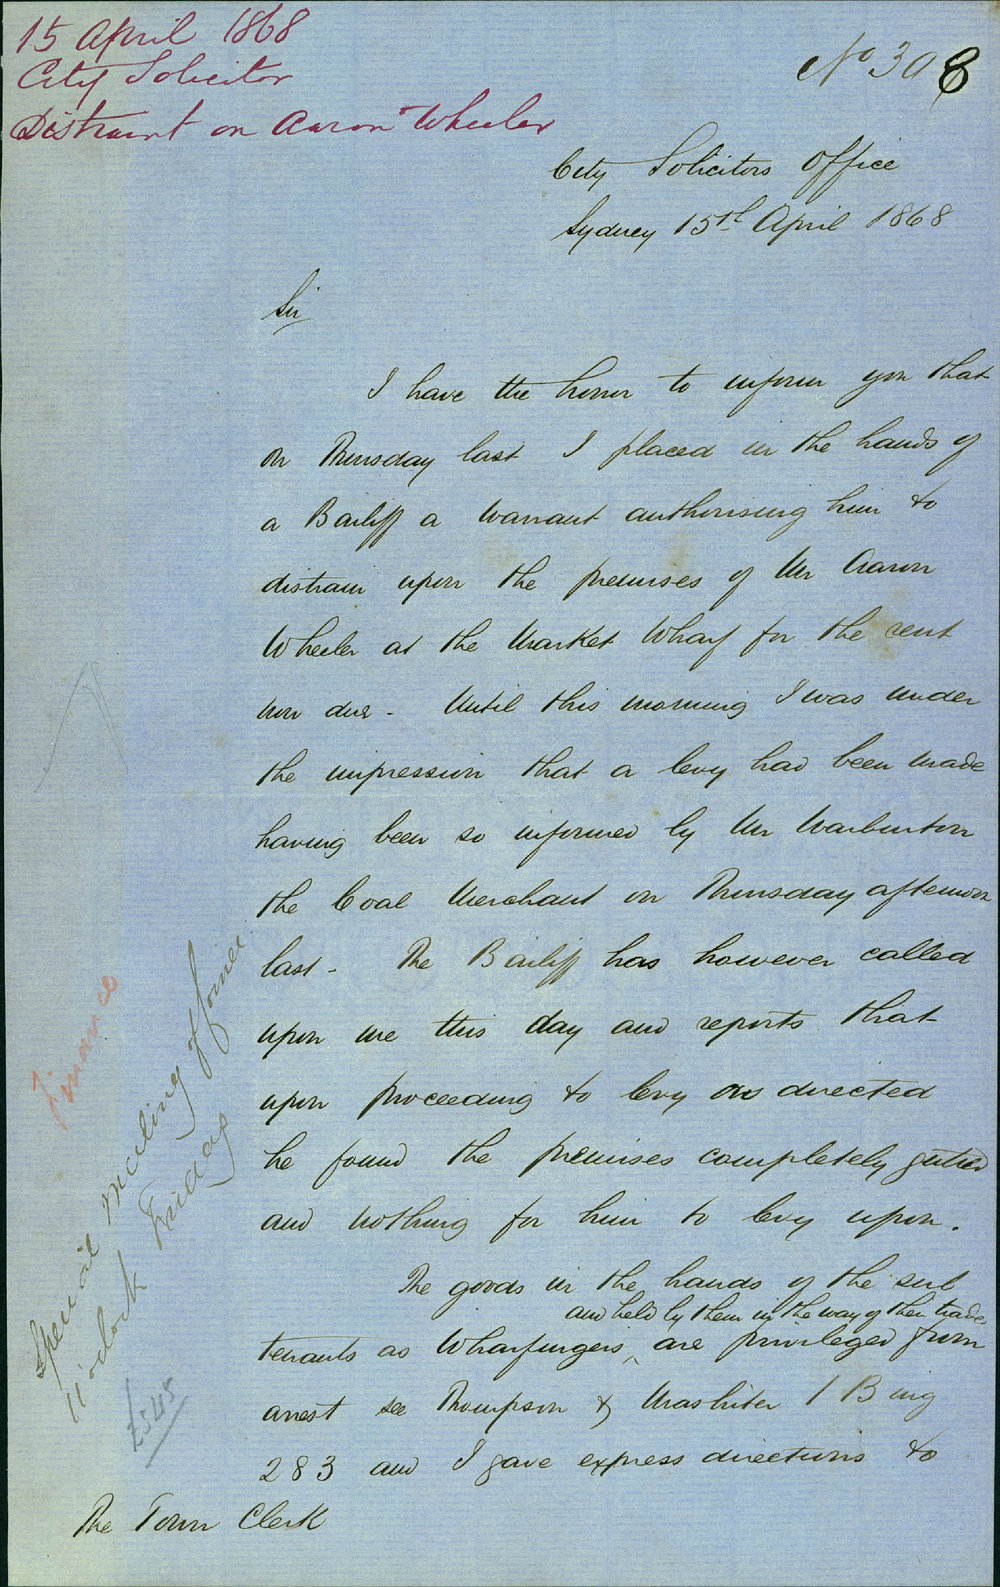 15 April 1868
City Solicitor
Distraint on Aaron Wheeler
No 308
City Solicitors Office
Sydney 15th April 1868
Sir
I have the honor to inform you that
on Thursday last I placed in the hands of
a Bailiff a Warrant authorising him to
distrain upon the premises of Mr Aaron
Wheeler at the Market Wharf for the rent
now due - Until this morning I was under
the impression that a levy had been made
having been so informed by Mr Warburton
the Coal Merchant on Thursday afternoon
last - The Bailiff has however called
upon me this day and reports that
upon proceeding to levy as directed
he found the premises completely gutted
and nothing for him to levy upon.
The goods in the hands of the sub
and held by them in the way of their trade
tenants as Wharfingers, are privileged from
arrest see Thompson & Mashiter 1 Bing
283 and I gave express directions to
The Town Clerk
Finance
Special meeting of
Friday
11 oclock
£545